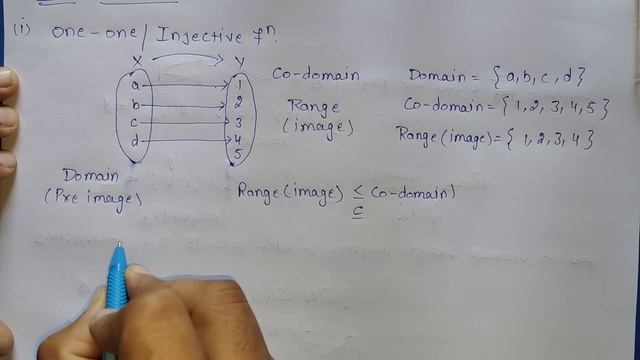 (i) one-one / Injective fⁿ.
X Y
a 1
b 2
c 3
d 4
5
Co-domain
Range
(image)
Domain = {a, b, c, d}
Co-domain = {1, 2, 3, 4, 5}
Range (image) = {1, 2, 3, 4}
Domain
(Pre image)
Range (image) ≤ Co-domain)
⊆